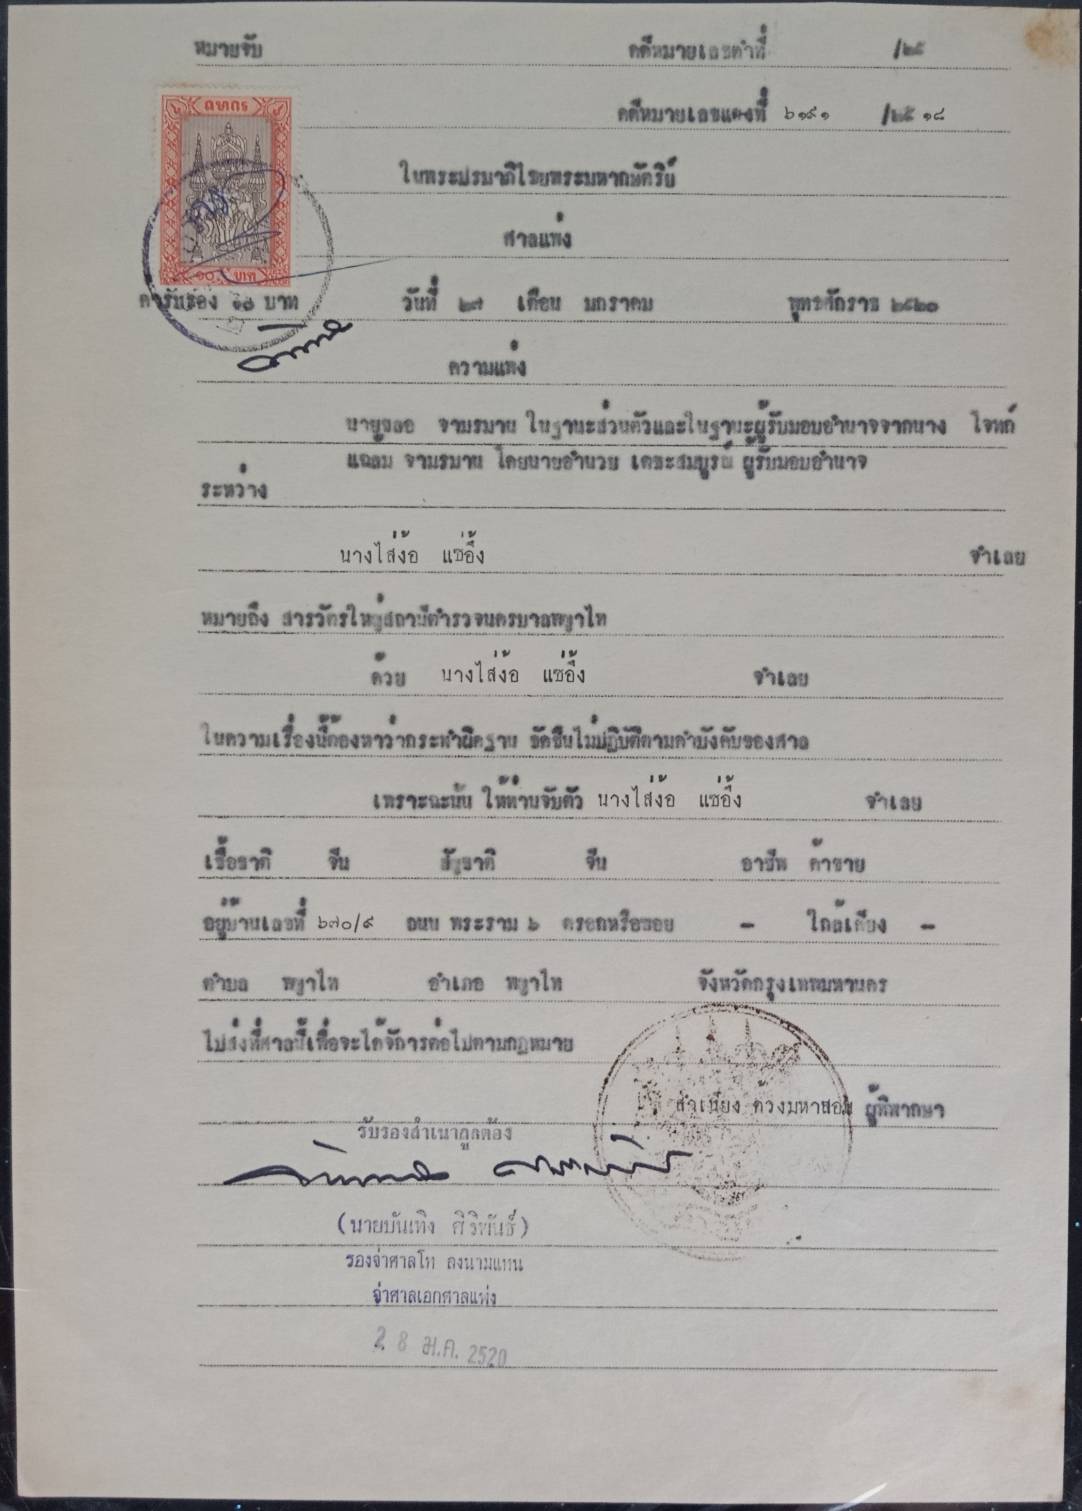 หมายจับ คดีหมายเลขดำที่ /๒๕
คดีหมายเลขแดงที่ ๖๑๙๑ /๒๕๑๘
อากร
๑๐ บาท
ในพระปรมาภิไธยพระมหากษัตริย์
ศาลแพ่ง
ค่ารับรอง ๑๐ บาท วันที่ ๒๗ เดือน มกราคม พุทธศักราช ๒๕๒๐
ความแพ่ง
นายูซลอ จามรมาน ในฐานะส่วนตัวและในฐานะผู้รับมอบอำนาจจากนาง โจทก์
แฉลม จามรมาน โดยนายอำนวย เตชะสมบูรณ์ ผู้รับมอบอำนาจ
ระหว่าง
นางไส่ง้อ แซ่อึ้ง จำเลย
หมายถึง สารวัตรใหญ่สถานีตำรวจนครบาลพญาไท
ด้วย นางไส่ง้อ แซ่อึ้ง จำเลย
ในความเรื่องนี้ต้องหาว่ากระทำผิดฐาน ขัดขืนไม่ปฏิบัติตามคำบังคับของศาล
เพราะฉะนั้น ให้ท่านจับตัว นางไส่ง้อ แซ่อึ้ง จำเลย
เชื้อชาติ จีน สัญชาติ จีน อาชีพ ค้าขาย
อยู่บ้านเลขที่ ๖๗๐/๙ ถนน พระราม ๖ ตรอกหรือซอย - ใกล้เคียง -
ตำบล พญาไท อำเภอ พญาไท จังหวัดกรุงเทพมหานคร
ไปส่งที่ศาลนี้เพื่อจะได้จัดการต่อไปตามกฎหมาย
สำเนียง ด้วงมหาสอน ผู้พิพากษา
รับรองสำเนาถูกต้อง
(นายบันเทิง ศิริพันธ์)
รองจ่าศาลโท ลงนามแทน
จ่าศาลเอกศาลแพ่ง
28 ม.ค. 2520